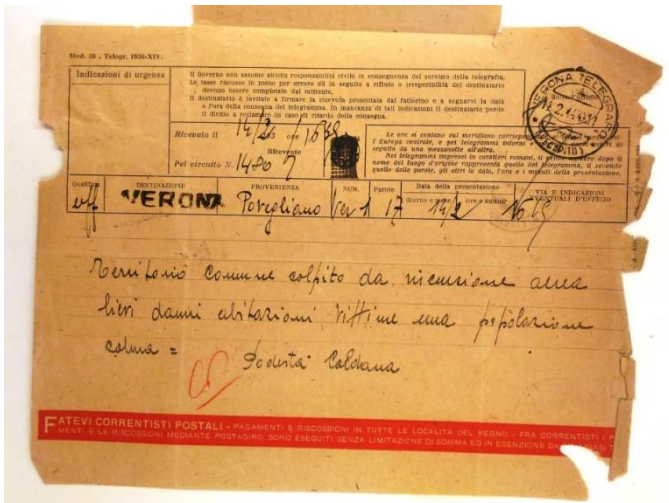 Mod. 30 - Telegr. 1936-XIV.
Indicazioni di urgenza
Il Governo non assume alcuna responsabilità civile in conseguenza del servizio della telegrafia.
Le tasse riscosse in meno per errore od in seguito a rifiuto o irreperibilità del destinatario
devono essere completate dal mittente.
Il destinatario è invitato a firmare la ricevuta presentata dal fattorino e a segnarvi la data
e l'ora della consegna del telegramma. In mancanza di tali indicazioni il destinatario perde
il diritto a reclamare in caso di ritardo della consegna.
VERONA TELEGRAFO
Ricevuto il 14/2 ore 16
Ricevente
Pel circuito N. 1480
Le ore si contano sul meridiano
l'Europa centrale, e pei telegrammi interni
seguito da una mezzanotte all'altra.
Nei telegrammi impressi in caratteri romani, il primo numero dopo il
nome del luogo d'origine rappresenta quello del telegramma, il secondo
quello delle parole, gli altri la data, l'ora e i minuti della presentazione.
Qualifica DESTINAZIONE PROVENIENZA NUM. Parole Data della presentazione VIA E INDICAZIONI
Giorno e mese Ore e minuti EVENTUALI D'UFFICIO
uff VERONA Povegliano Ver 1 17 14/2 16
Territorio Comune colpito da incursione aerea
lievi danni abitazioni Vittime una popolazione
calma =
Podestà Caldana
FATEVI CORRENTISTI POSTALI - PAGAMENTI E RISCOSSIONI IN TUTTE LE LOCALITÀ DEL REGNO - FRA CORRENTISTI I
MENTI E LE RISCOSSIONI MEDIANTE POSTAGIRO, SONO ESEGUITI SENZA LIMITAZIONE DI SOMMA ED IN ESENZIONE DA